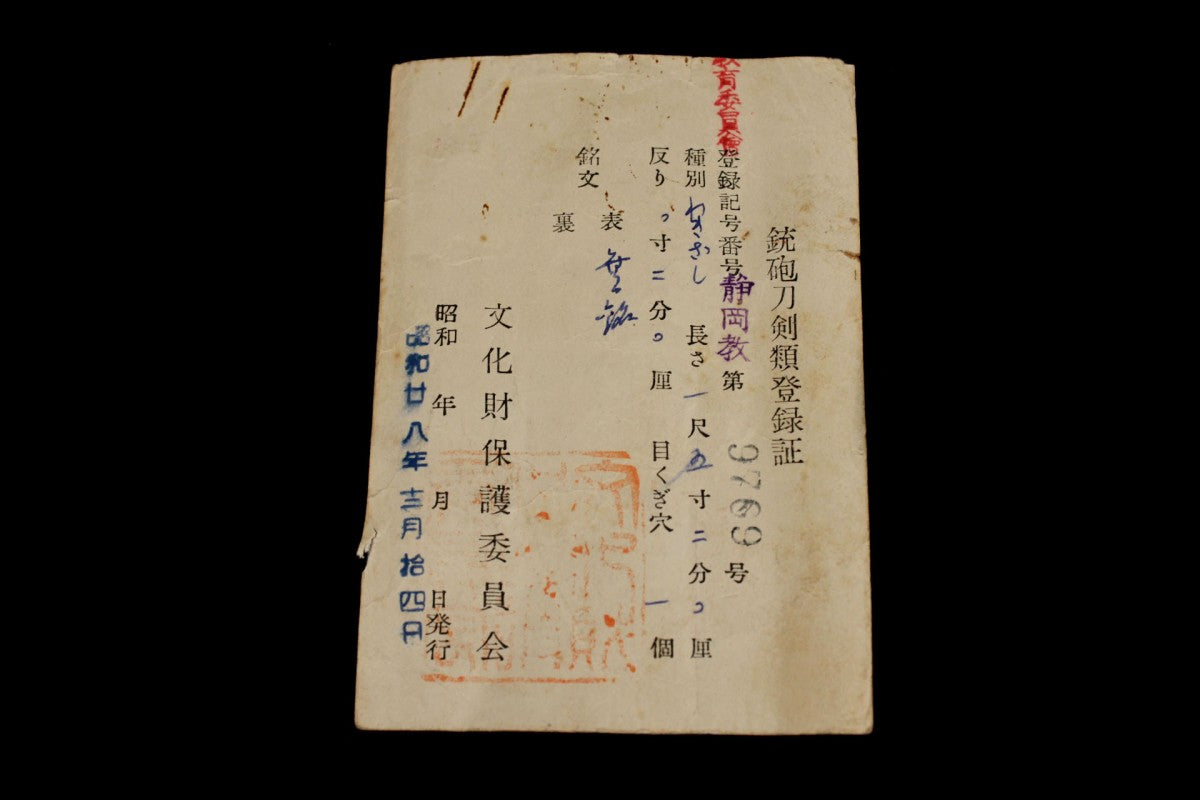 銃砲刀剣類登録証
教育委員会
登録記号番号 静岡教 第 9769 号
種別 わきざし 長さ 一尺五寸二分〇厘
反り 〇寸二分〇厘 目くぎ穴 一個
銘文 表 無銘
裏
文化財保護委員会
昭和 年 月 日発行
昭和廿八年十二月拾四日